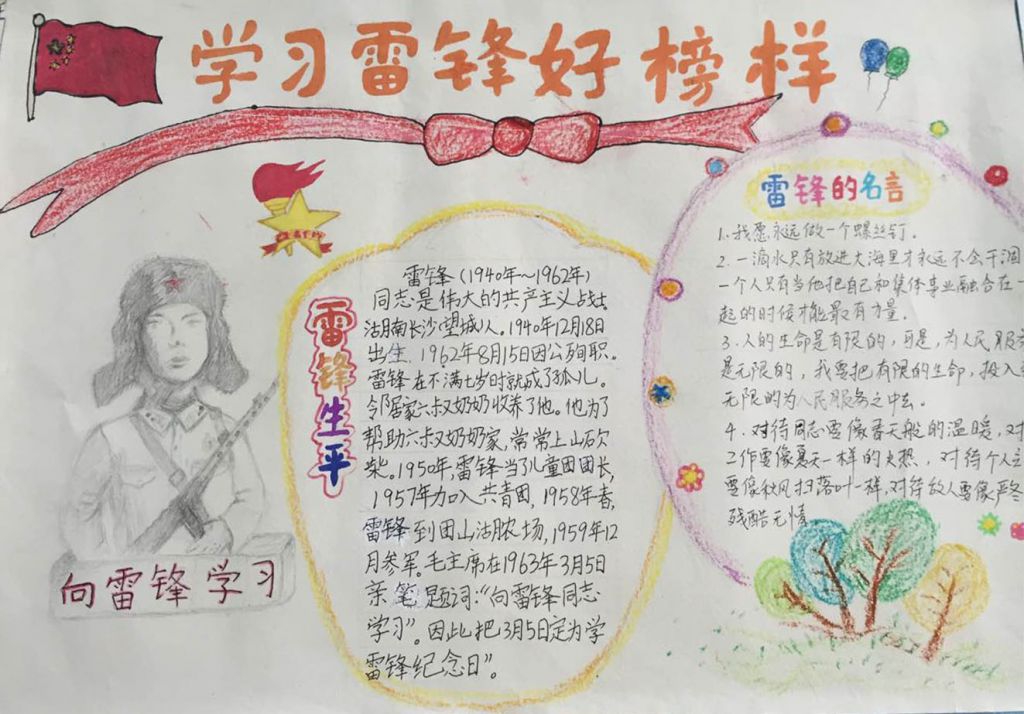 学习雷锋好榜样
雷锋生平
雷锋(1940年～1962年)
同志是伟大的共产主义战士
沽月南长沙望城人。1940年12月18日
出生,1962年8月15日因公殉职。
雷锋在不满七岁时就成了孤儿。
邻居家六叔奶奶收养了他。他为了
帮助六叔奶奶家,常常上山砍
柴。1950年,雷锋当了儿童团团长,
1957年加入共青团,1958年春,
雷锋到团山沽脓场,1959年12
月参军。毛主席在1963年3月5日
亲笔题词:“向雷锋同志
学习”。因此把3月5日定为学
雷锋纪念日”。
向雷锋学习
雷锋的名言
1.我愿永远做一个螺丝钉。
2.一滴水只有放进大海里才永远不会干涸
一个人只有当他把自己和集体事业融合在一
起的时候才能最有力量。
3.人的生命是有限的,可是,为人民服务
是无限的,我要把有限的生命,投入到
无限的为人民服务之中去。
4.对待同志要像春天般的温暖,对
工作要像夏天一样的火热,对待个人主
要像秋风扫落叶一样,对待敌人要像严冬
残酷无情